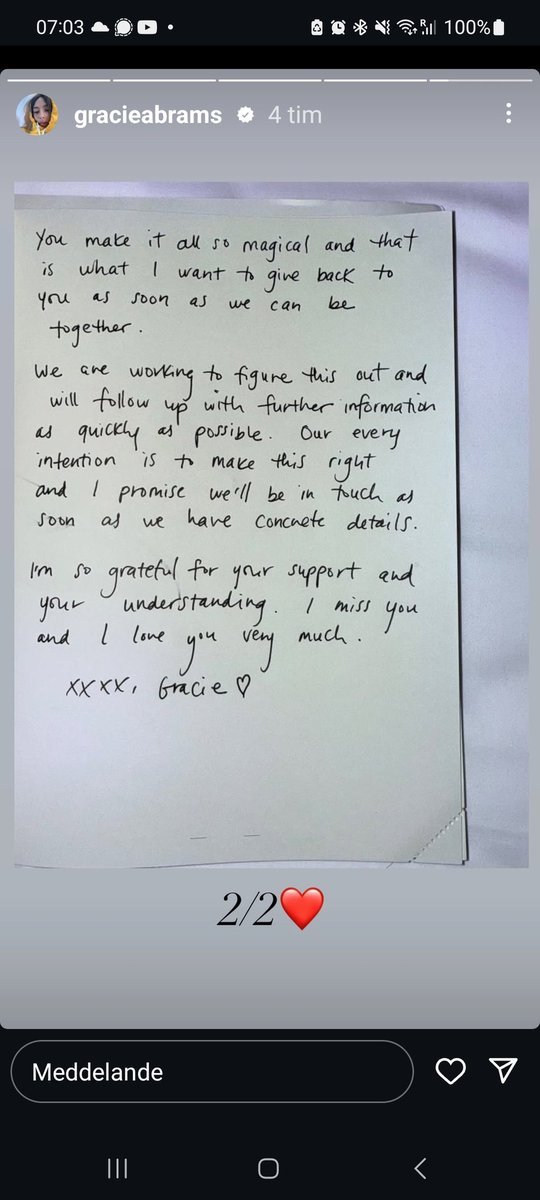 07:03
100%
gracieabrams
4 tim
You make it all so magical and that
is what I want to give back to
you as soon as we can be
together.
We are working to figure this out and
will follow up with further information
as quickly as possible. Our every
intention is to make this right
and I promise we'll be in touch as
soon as we have concrete details.
I'm so grateful for your support and
your understanding. I miss you
and I love you very much.
xxxx, Gracie ♡
2/2❤️
Meddelande